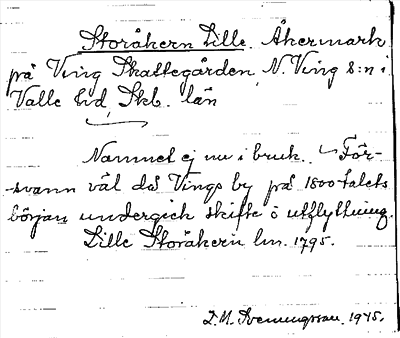 Storåkern Lille. Åkermark
på Ving Skattegården, N. Ving s:n i
Valle hd, Skb. län
Namnet ej nu i bruk. För-
svann väl då Vings by på 1800-talets
början undergick skifte o utflyttning.
Lille Storåkern lm. 1795.
D. M. Svenungsson 1945.